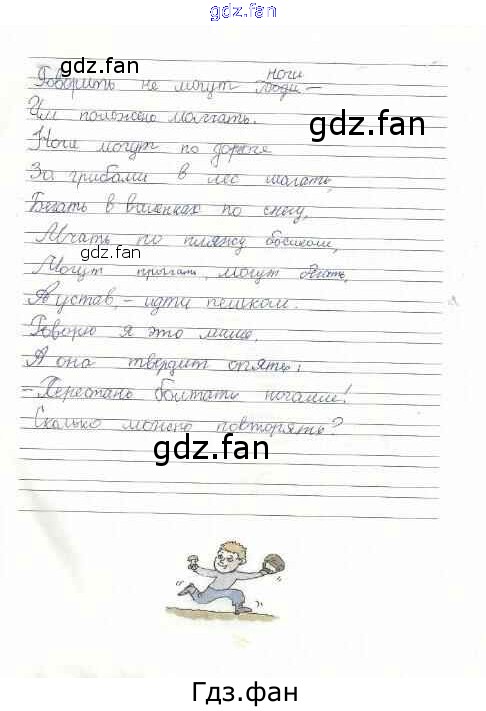 gdz.fan
gdz.fan
ноги
Говорить не могут люди –
gdz.fan
Им положено молчать.
Ноги могут по дороге
За грибами в лес шагать,
Бегать в валенках по снегу,
Мчать по пляжу босиком,
gdz.fan
Могут прыгать, могут бегать,
А устав, – идти пешком.
Говорю я это маме,
gdz.fan
А она твердит опять:
– Перестань болтать ногами!
Сколько можно повторять?
gdz.fan
Гдз.фан